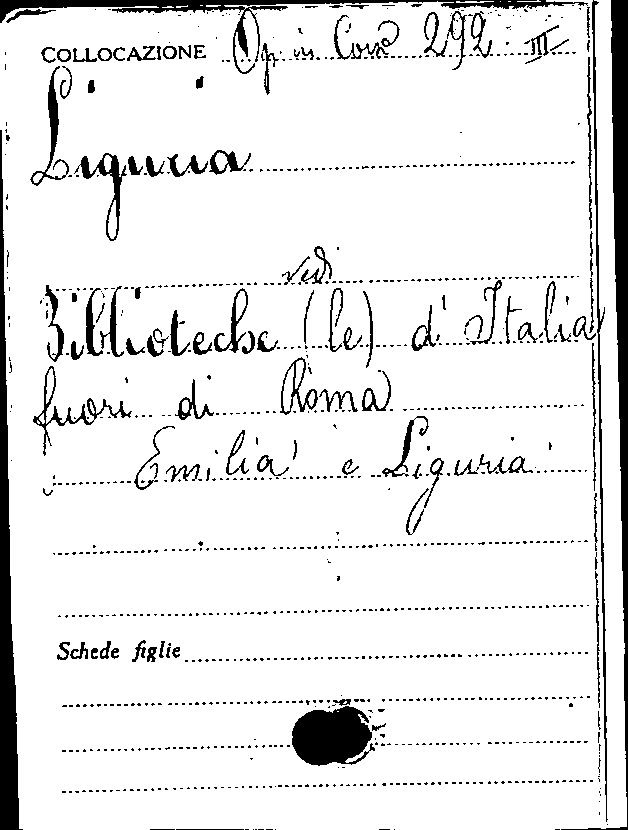 COLLOCAZIONE Op in Cons 292 III
Liguria
vedi
Biblioteche (le) d' Italia
fuori di Roma
Emilia e Liguria
Schede figlie